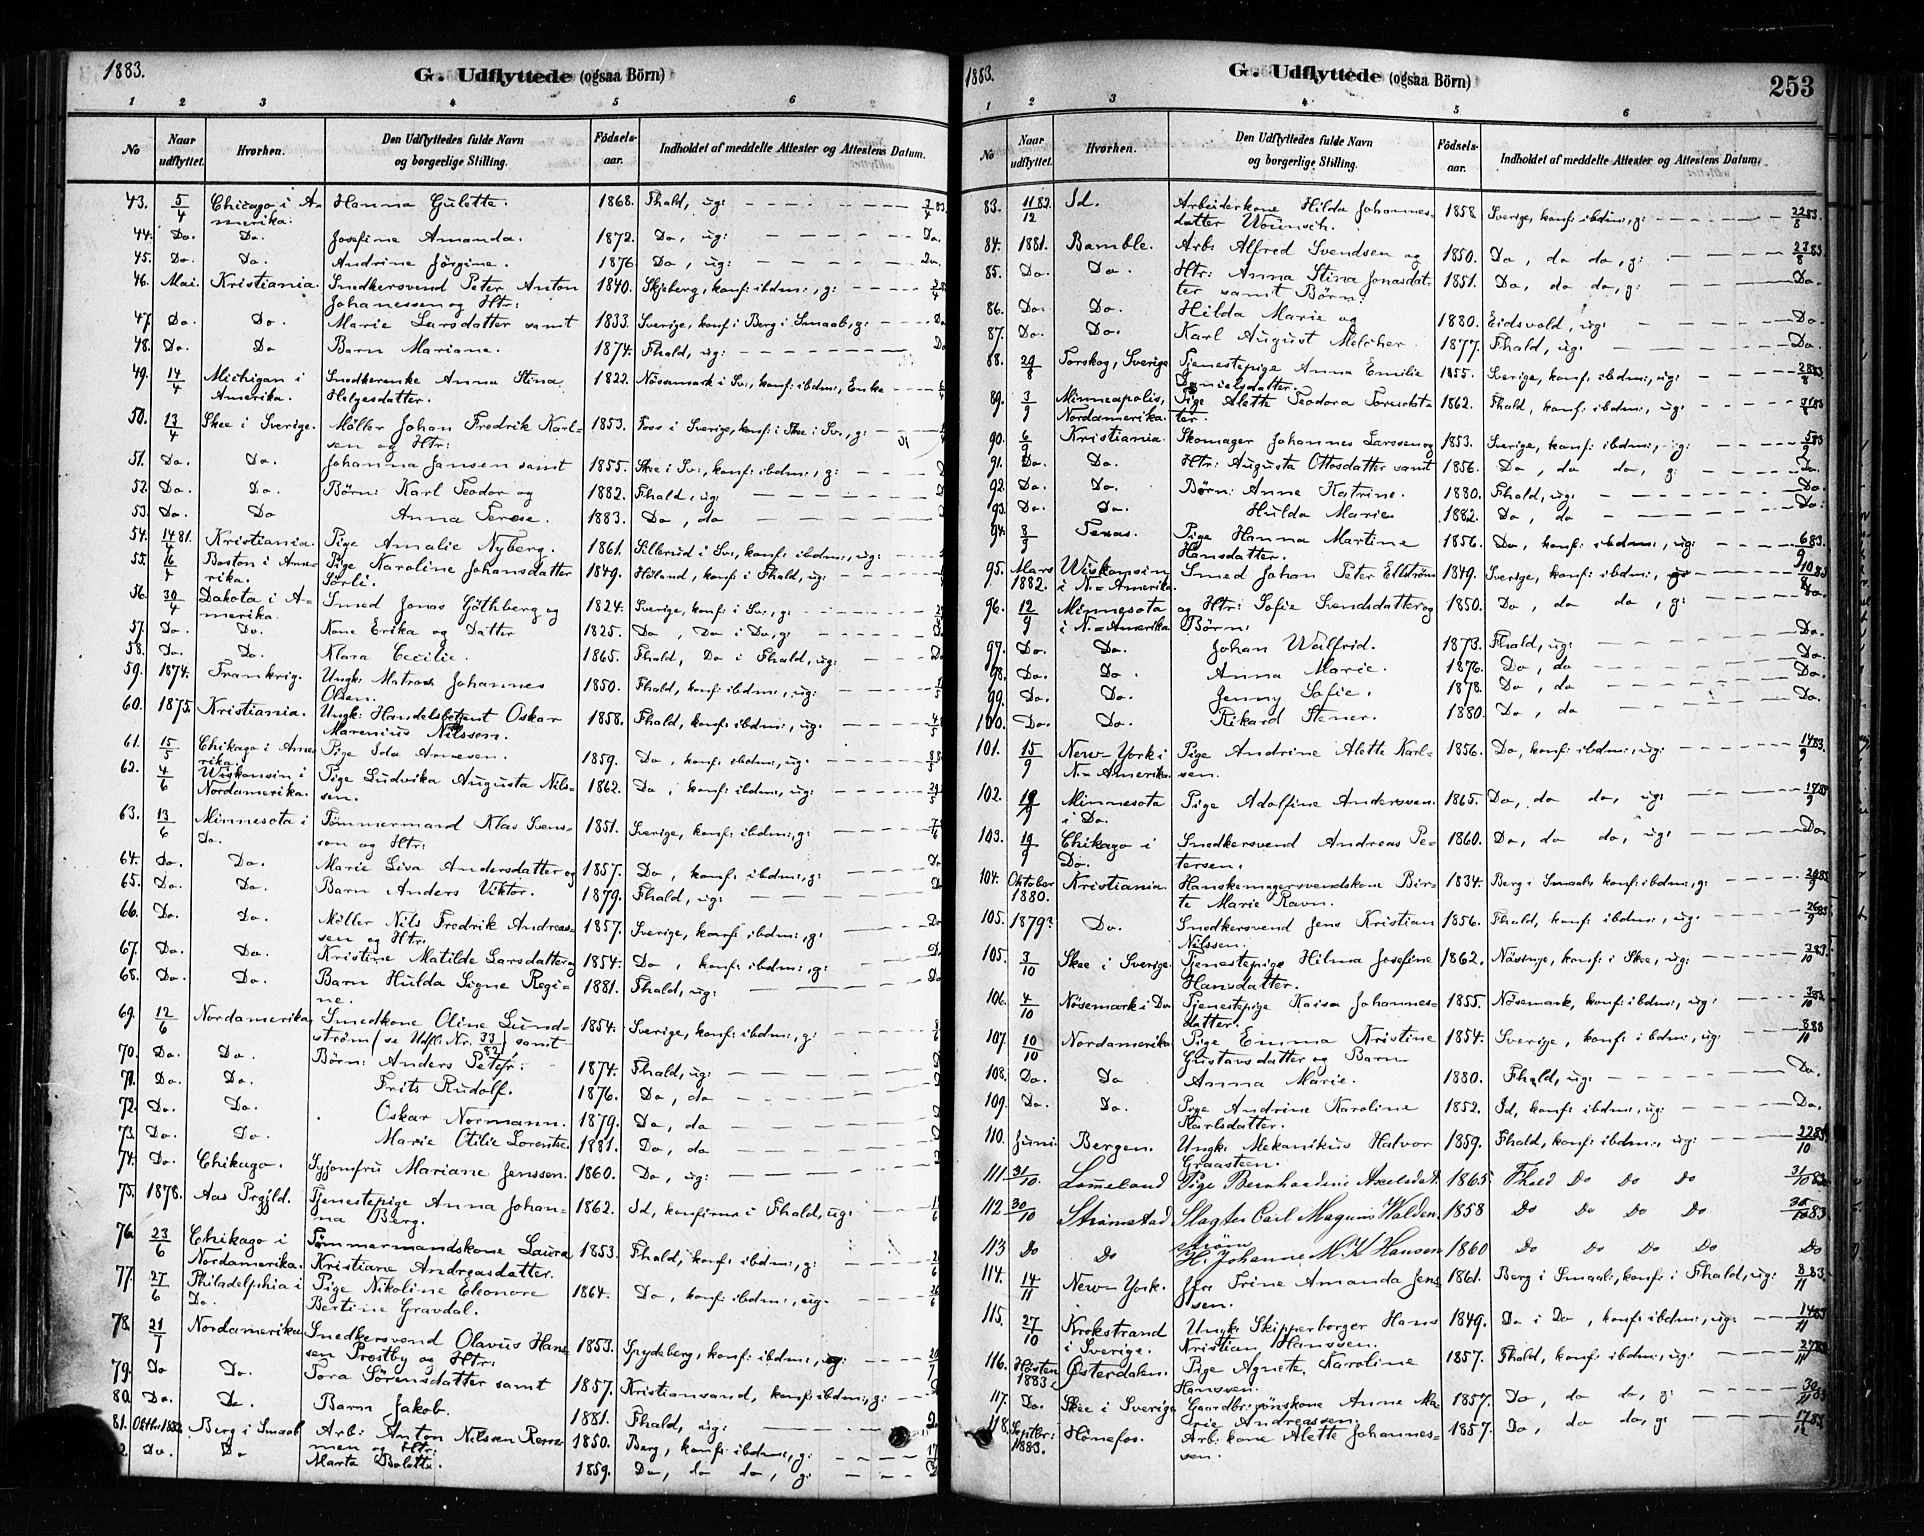 1883.
G. Udflyttede (ogsaa Börn)
1 2 3 4 5 6
No Naar udflyttet. Hvorhen. Den Udflyttedes fulde Navn og borgerlige Stilling. Fødsels-aar. Indholdet af meddelte Attester og Attestens Datum.
43. 5/4 Chicago i A- Hanna Gulette. 1868. Fhald, ug:
merika.
44. Do. Do. Josefine Amanda. 1872. Do, ug: Do.
45. Do. Do. Andrine Jörgine. 1876 Do, ug: Do.
46. Mai. Kristiania. Snedkersvend Peter Anton 1840. Skjeberg, konf: ibdm:, g:
Johanessen og Htr:
47. Do. Do. Marie Larsdatter samt 1833. Sverige, konf: i Berg i Smaal:, g: Do
48. Do. Do Barn Mariane. 1874. Fhald, ug: Do
49. 14/4 Michigan i Snedkerenke Anna Stina 1822. Nössemark i Sv:, konf: ibdm:, Enke
Amerika. Helgesdatter.
50. 13/4 Skee i Sverige. Möller Johan Fredrik Karl- 1853. Foss i Sverige, konf: i Skee i Sv:, g:
sen og Htr:
51. Do. Do. Johanna Jansen samt 1855. Skee i Sv:, konf: ibdm:, g:
52. Do. Do. Børn: Karl Teodor og 1882. Fhald, ug:
53. Do. Do Anna Terese. 1883. Do, do
54. 14/4 81. Kristiania. Pige Amalie Nyberg. 1861. Sillerud i Sv:, konf: ibdm:, ug:
55. 16/4 Boston i Ame- Pige Karoline Johansdatter 1849. Höland, konf: i Fhald, ug:
rika. Sörli.
56. 30/4 Dakota i A- Smed Jonas Göthberg og 1824. Sverige, konf: i Sv:, g:
merika.
57. Do. Do. Kone Erika og Datter 1825. Do, Do i Do, g:
58. Do. Do. Klara Cecilie. 1865. Fhald, Do i Fhald, ug: Do
59. 1874. Frankrig. Ungk: Matros Johannes 1850. Fhald, konf: ibdm:, ug:
Olsen.
60. 1875. Kristiania. Ungk: Handelsbetjent Oskar 1858. Fhald, konf: ibdm:, ug:
Marenius Nilssen.
61. 15/5 Chikago i Ame- Pige Ida Arnesen. 1859. Do, konf: ibdm:, ug:
rika.
62. 4/6 Wiskonsin i Pige Ludvika Augusta Nils- 1862. Do, konf: ibdm:, ug:
Nordamerika. sen.
63. 13/6 Minnesota i Tömmermand Klas Svens- 1851. Sverige, konf: ibdm:, g:
Do. son og Htr:
64. Do. Do. Marie Lisa Andersdatter og 1857. Do, konf: ibdm:, g: Do
65. Do. Do. Barn Anders Viktor. 1879. Fhald, ug: Do
66. Do. Do. Möller Nils Fredrik Andreas- 1857. Sverige, konf: ibdm:, g: Do
sen og Htr.
67. Do. Do. Kristine Matilde Larsdatter og 1854. Do, konf: ibdm:, g:
68. Do. Do. Barn Hulda Signe Regi- 1881. Fhald, ug: Do
ne.
69. 12/6 Nordamerika Smedkone Oline Lund- 1854. Sverige, konf: ibdm:, g:
ström (se Udfl: Nr. 33/82) samt
70. Do. Do. Börn: Anders Peter: 1874. Fhald, ug:
71. Do. Do. Frits Rudolf. 1876. Do, do
72. Do. Do. Oskar Normann. 1879. Do, do
73. Do. Do. Marie Otilie Lorentse. 1881. Do, do
74. Do. Chikago. Syjomfru Mariane Jenssen. 1860. Do, ug:
75. 1878. Aas Prgjld. Tjenestepige Anna Johan- 1862. Id, konfirm: i Fhald, ug:
na Berg.
76. 23/6 Chikago i Tömmermandskone Laura 1853. Fhald, konf: ibdm:, g:
Nordamerika. Kristiane Andreasdatter.
77. 27/6 Philadelphia i Pige Nikoline Eleonore 1864. Do, konf: ibdm:, ug:
Do. Bertine Gravdal.
78. 21/7 Nordamerika Snedkersvend Olavus Han- 1853. Spydeberg, konf: ibdm:,
sen Prestby og Htr:
79. Do Do. Tora Sörensdatter samt 1857. Kristiansand, konf: ibdm:, g:
80. Do. Do. Barn Jakob. 1881. Fhald, ug:
81. Oktbr: 1882. Berg i Smaal: Arb: Anton Nilssen Rem- 1850. Berg, konf: ibdm:, g:
men og Htr:
Do. Do Marta Bolette. 1859. Do, do do, g:
1883.
G. Udflyttede (ogsaa Börn)
253
1 2 3 4 5 6
No Naar udflyttet. Hvorhen. Den Udflyttedes fulde Navn og borgerlige Stilling. Födsels-aar. Indholdet af meddelte Attester og Attestens Datum.
83. 11/12 82. Id. Arbeiderkone Hilda Johannes- 1858. Sverige, konf: ibdm:, g: 22/8 83.
datter Wounsch.
84. 1881. Bamble. Arb: Alfred Svendsen og 1850. Do, do do, g: 23/8 83
85. Do. Do. Htr: Anna Stina Jonasdat- 1851. Do, do do, g: Do.
ter samt Börn:
86. Do. Do. Hilda Marie og 1880. Eidsvold, ug: Do.
87. Do. Do. Karl August Melcher. 1877. Fhald, ug: Do.
88. 29/8 Torskog, Sverige Tjenestepige Anna Emilie 1855. Sverige, konf: ibdm:, ug: 28/8 83.
Danielsdatter.
89. 3/9 Minneapolis, Pige Alette Teodora Toresdat- 1862. Fhald, konf: ibdm:, ug: 31/8 83
Nordamerika. ter.
90. 6/9 Kristiania. Skomager Johannes Larssen og 1853. Sverige, konf: ibdm:, g: 5/9 83
91. Do. Do. Htr: Augusta Ottosdatter samt 1856. Do, do do, g: Do.
92. Do. Do. Börn: Anne Katrine. 1880. Fhald, ug: Do.
93. Do. Do. Hulda Marie 1882. Do, do Do.
94. 8/9 Texas. Pige Hanna Martine 1856. Do, konf: ibdm:, ug: 6/9 83.
Hansdatter.
95. Mars Wiskonsin Smed Johan Peter Ellström 1849. Sverige, konf: ibdm:,
1882. i N.=Amerika.
96. 12/9 Minnesota og Htr: Sofie Svendsdatter og 1850. Do, do do, g: Do.
i N.=Amerika Börn:
97. Do. Do. Johan Walfrid. 1873. Fhald, ug: Do.
98. Do. Do. Anna Marie. 1876. Do, do Do.
99. Do. Do. Jenny Sofie. 1878. Do, do Do.
100. Do. Do. Rikard Stener. 1880. Do, do Do.
101. 15/9 New-York i Pige Andrine Alette Karl- 1856. Do, konf: ibdm:, ug: 14/9 83.
N.=Amerika. sen.
102. 19/9 Minnesota Pige Adolfine Anderssen. 1865. Do, do do, ug:
i Do.
103. 19/9 Chikago i Snedkersvend Andreas Pe- 1860. Do, do do, ug: Do.
Do. tersen.
104. Oktober Kristiania. Hanskemagersvendskone Bir- 1834. Berg i Smaal: konf: ibdm:, g:
1880. te Marie Ravn.
105. 1879? Do. Snedkersvend Jens Kristian 1856. Fhald, konf: ibdm:, ug: 26/9 83
Nilssen.
105. 3/10 Skee i Sverige. Tjenestepige Hilma Josefine 1862. Näsinge, konf: i Skee, ug: 2/10 83.
Hansdatter.
106. 4/10 Nösemark i Do Tjenestepige Kaisa Johannes- 1855. Nösemark, konf: ibdm:, ug: 3/10 83.
datter.
107. 10/10 Nordamerika Pige Emma Kristine 1854. Sverige, konf: ibdm:, ug: 8/10 83
Gustavsdatter og Barn
108. Do. Do Anna Marie. 1880. Fhald, ug: Do.
109. Do. Do. Pige Andrine Karoline 1852. Id, konf: ibdm:, ug: Do.
Karlsdatter.
110. Juni. Bergen. Ungk: Mekanikus Halvor 1859. Fhald, konf: ibdm:, ug: 22/10 83.
Graasteen.
111 31/10. Lommeland Pige Bernhardine Axelsdat. 1865 Fhald Do Do Do 31/10 83
112 30/10 Strømstad Slagter Carl Magnus Walden- 1858 Do Do Do Do 30/10 83
strøm
113 Do Do H. Johanne M. K. Hansen 1860 Do Do Do Do Do
114. 14/11 New-York. Jfr: Trine Amanda Jens- 1861. Berg i Smaal:, konf: i Fhald, ug: 8/11 83.
sen.
115. 27/10 Krokstrand Ungk: Skipperborger Hans 1849. Do i Do, konf: ibdm:, ug: 14/11 83
i Sverige. Kristian Hanssen.
116. Hösten Østerdalen. Pige Agnete Karoline 1857. Fhald, konf: ibdm:, ug: 27/11 83
1883. Hanssen.
117. Do. Skee i Sverige Gaardbr:sönskone Anne Ma- 1857. Do, do do, g: 30/11 83
rie Andreassen.
118. Septbr: Hönefos. Arb:kone Alette Johannes- 1857. Do, do do, g: 17/12 83
1883. sen.